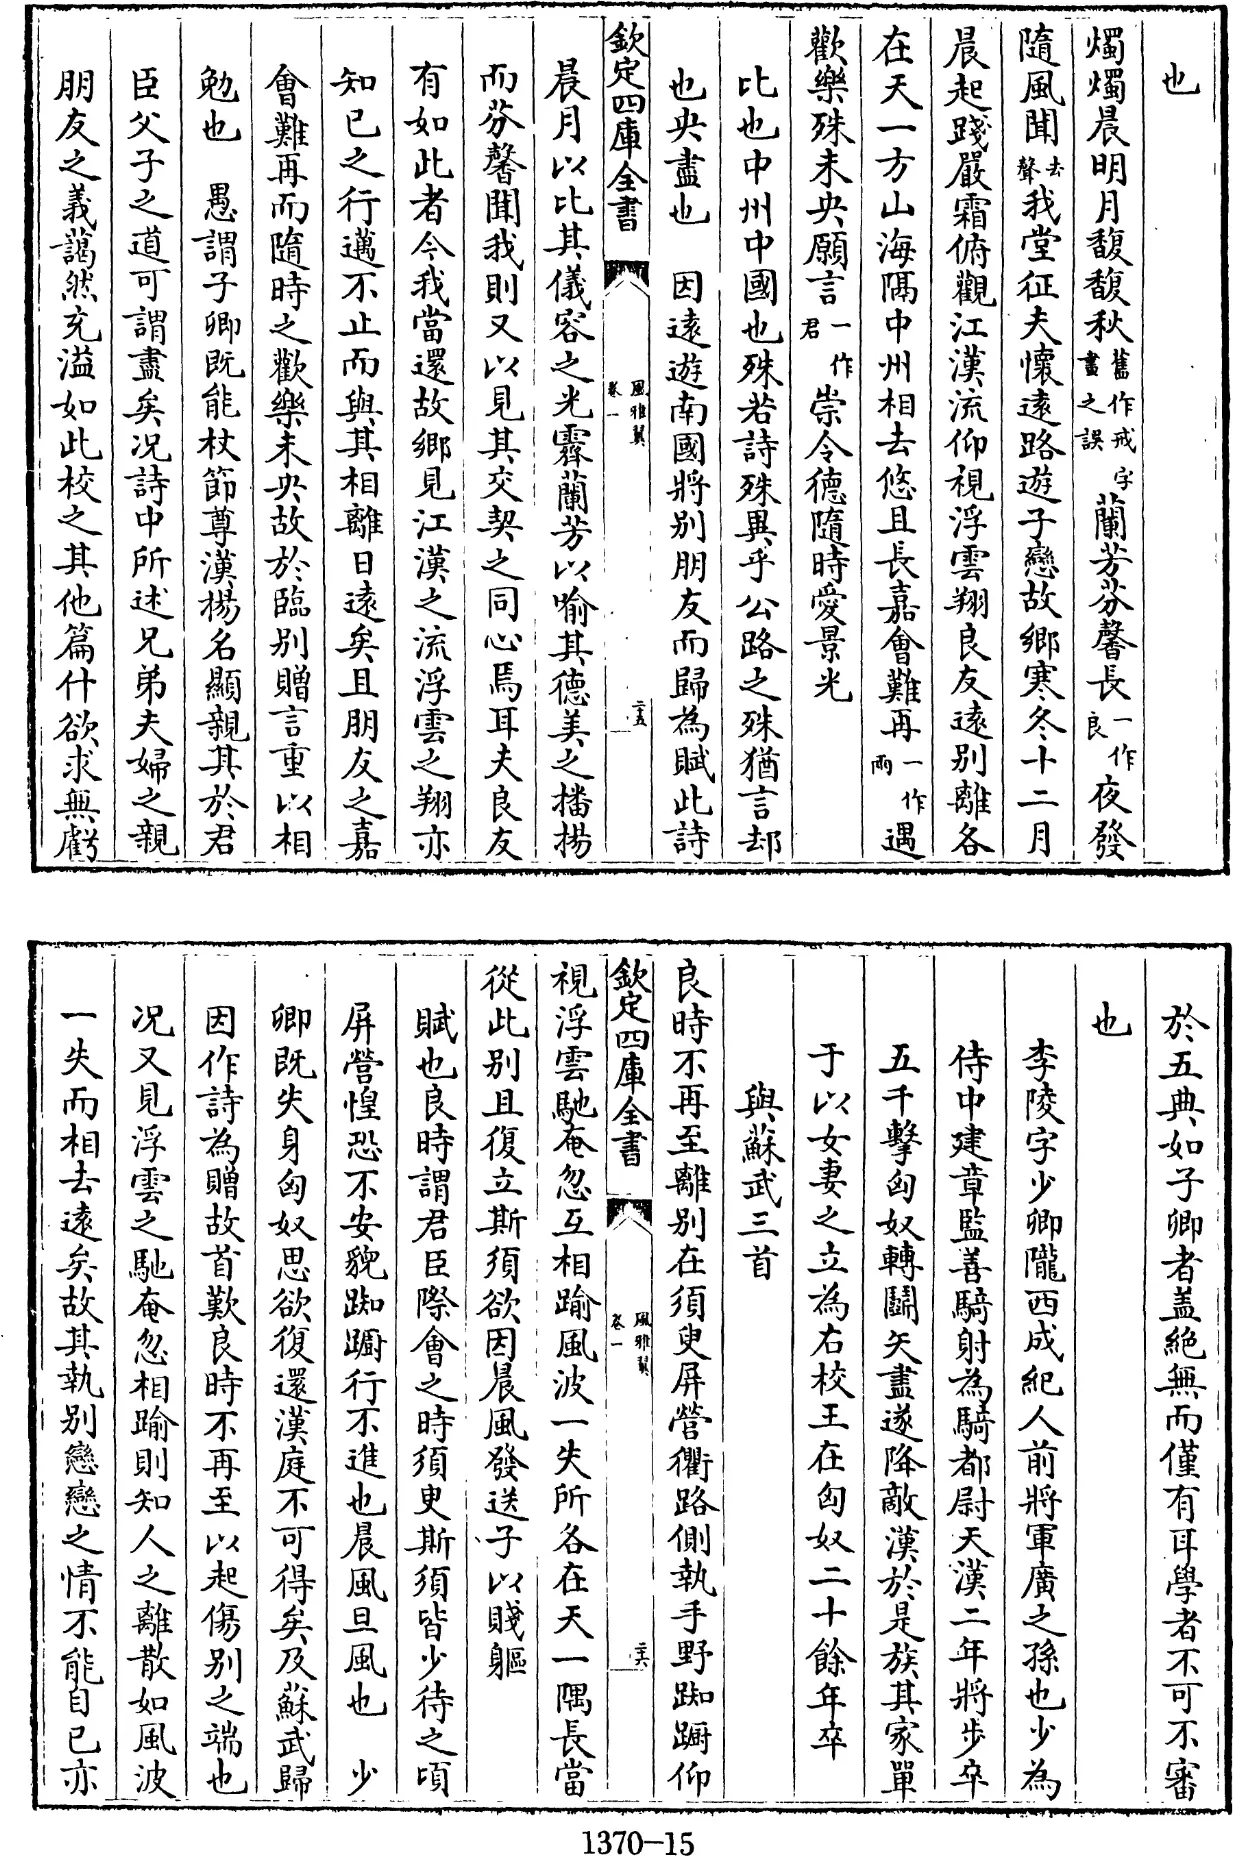 也
燭燭晨明月馥馥秋舊作戒字畫之誤蘭芳芬馨長一作良夜發
隨風聞去聲我堂征夫懷遠路遊子戀故鄉寒冬十二月
晨起踐嚴霜俯觀江漢流仰視浮雲翔良友遠別離各
在天一方山海隔中州相去悠且長嘉會難再一作兩遇
歡樂殊未央願言一作君崇令德隨時愛景光
比也中州中國也殊若詩殊異乎公路之殊猶言却
也央盡也　因遠遊南國將別朋友而歸為賦此詩
欽定四庫全書
風雅翼
卷一
二十五
晨月以比其儀容之光霽蘭芳以喻其德美之播揚
而芬馨聞我則又以見其交契之同心焉耳夫良友
有如此者今我當還故鄉見江漢之流浮雲之翔亦
知已之行邁不止而與其相離日遠矣且朋友之嘉
會難再而隨時之歡樂未央故於臨別贈言重以相
勉也　愚謂子卿既能杖節尊漢揚名顯親其於君
臣父子之道可謂盡矣况詩中所述兄弟夫婦之親
朋友之義藹然充溢如此校之其他篇什欲求無虧
於五典如子卿者盖絶無而僅有耳學者不可不審
也
李陵字少卿隴西成紀人前將軍廣之孫也少為
侍中建章監善騎射為騎都尉天漢二年將步卒
五千擊匈奴轉鬬矢盡遂降敵漢於是族其家單
于以女妻之立為右校王在匈奴二十餘年卒
與蘇武三首
良時不再至離別在須臾屏營衢路側執手野踟蹰仰
欽定四庫全書
風雅翼
卷一
二十六
視浮雲馳奄忽互相踰風波一失所各在天一隅長當
從此別且復立斯須欲因晨風發送子以賤軀
賦也良時謂君臣際會之時須臾斯須皆少待之頃
屏營惶恐不安貌踟蹰行不進也晨風旦風也　少
卿既失身匈奴思欲復還漢庭不可得矣及蘇武歸
因作詩為贈故首歎良時不再至以起傷別之端也
况又見浮雲之馳奄忽相踰則知人之離散如風波
一失而相去遠矣故其執別戀戀之情不能自已亦
1370-15